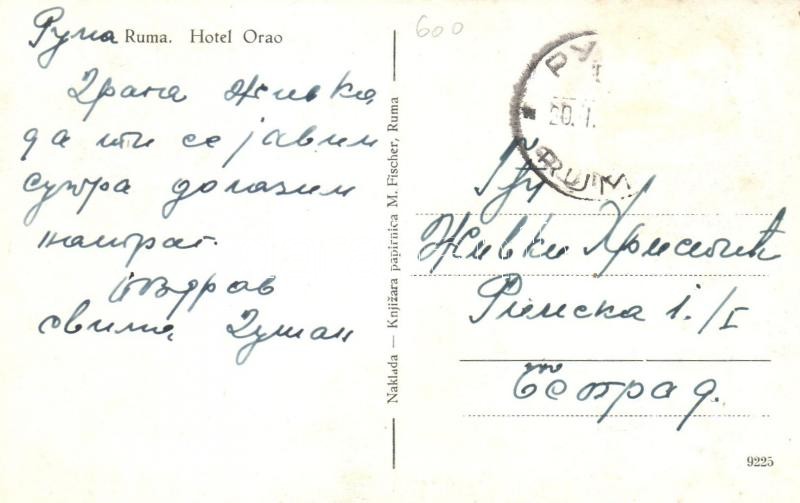 Рума Ruma. Hotel Orao
Драга Живка,
да ти се јавим
сутра долазим
натраг.
Поздрав
свима, Душан
Naklada — Knjižara papirnica M. Fischer, Ruma
600
РУ
20. I.
RUM
Гђи
Живки Христић
Римска 1./I
Београд.
9225